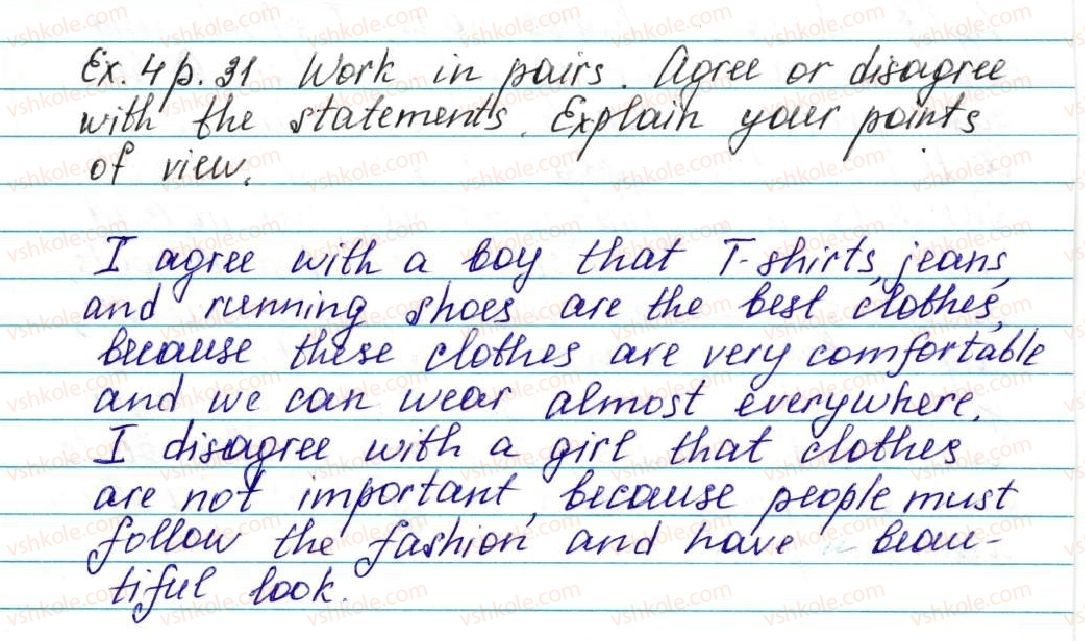 Ex. 4 p. 31 Work in pairs. Agree or disagree
with the statements. Explain your points
of view.
I agree with a boy that T-shirts, jeans,
and running shoes are the best clothes,
because these clothes are very comfortable
and we can wear almost everywhere.
I disagree with a girl that clothes
are not important, because people must
follow the fashion and have beau-
tiful look.